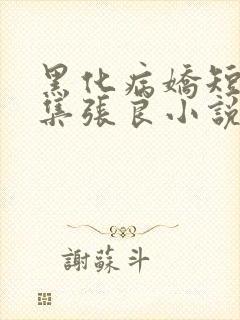 黑化病嬌短
集張良小說
謝蘇斗